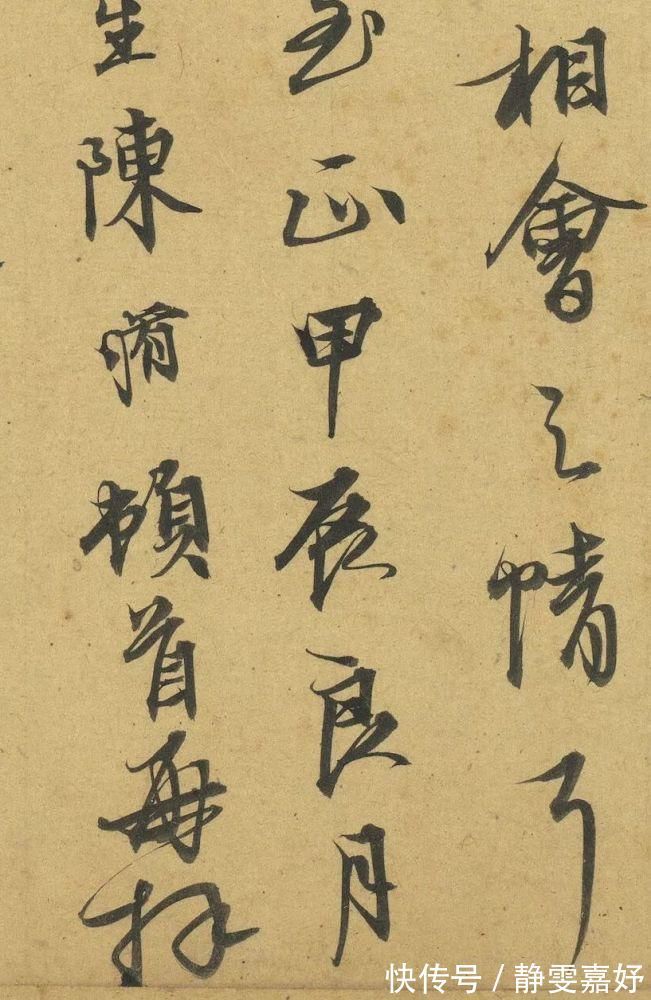 相會之情耳
至正甲辰良月
生陳脩頓首再拜
快传号/静雯嘉妤